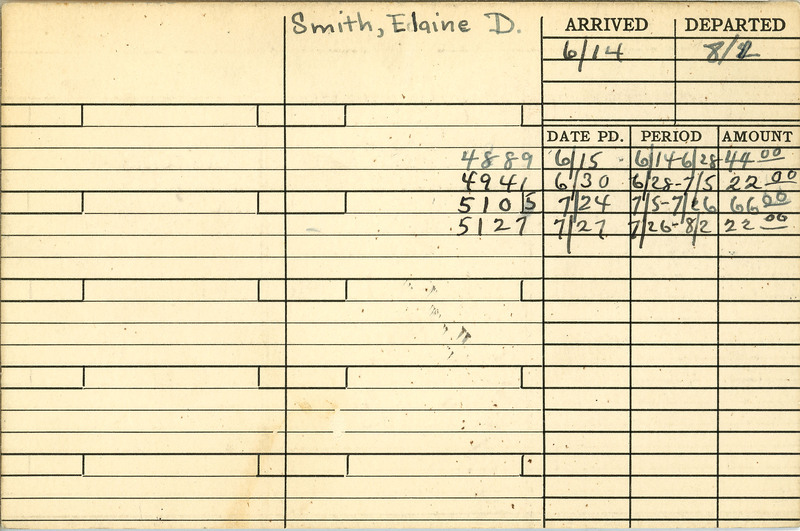 Smith, Elaine D. ARRIVED DEPARTED
6/14 8/2
DATE PD. PERIOD AMOUNT
4889 6/15 6/14 6/28 44 00
4941 6/30 6/28-7/5 22 00
5105 7/24 7/5-7/26 66 00
5127 7/27 7/26-8/2 22 00